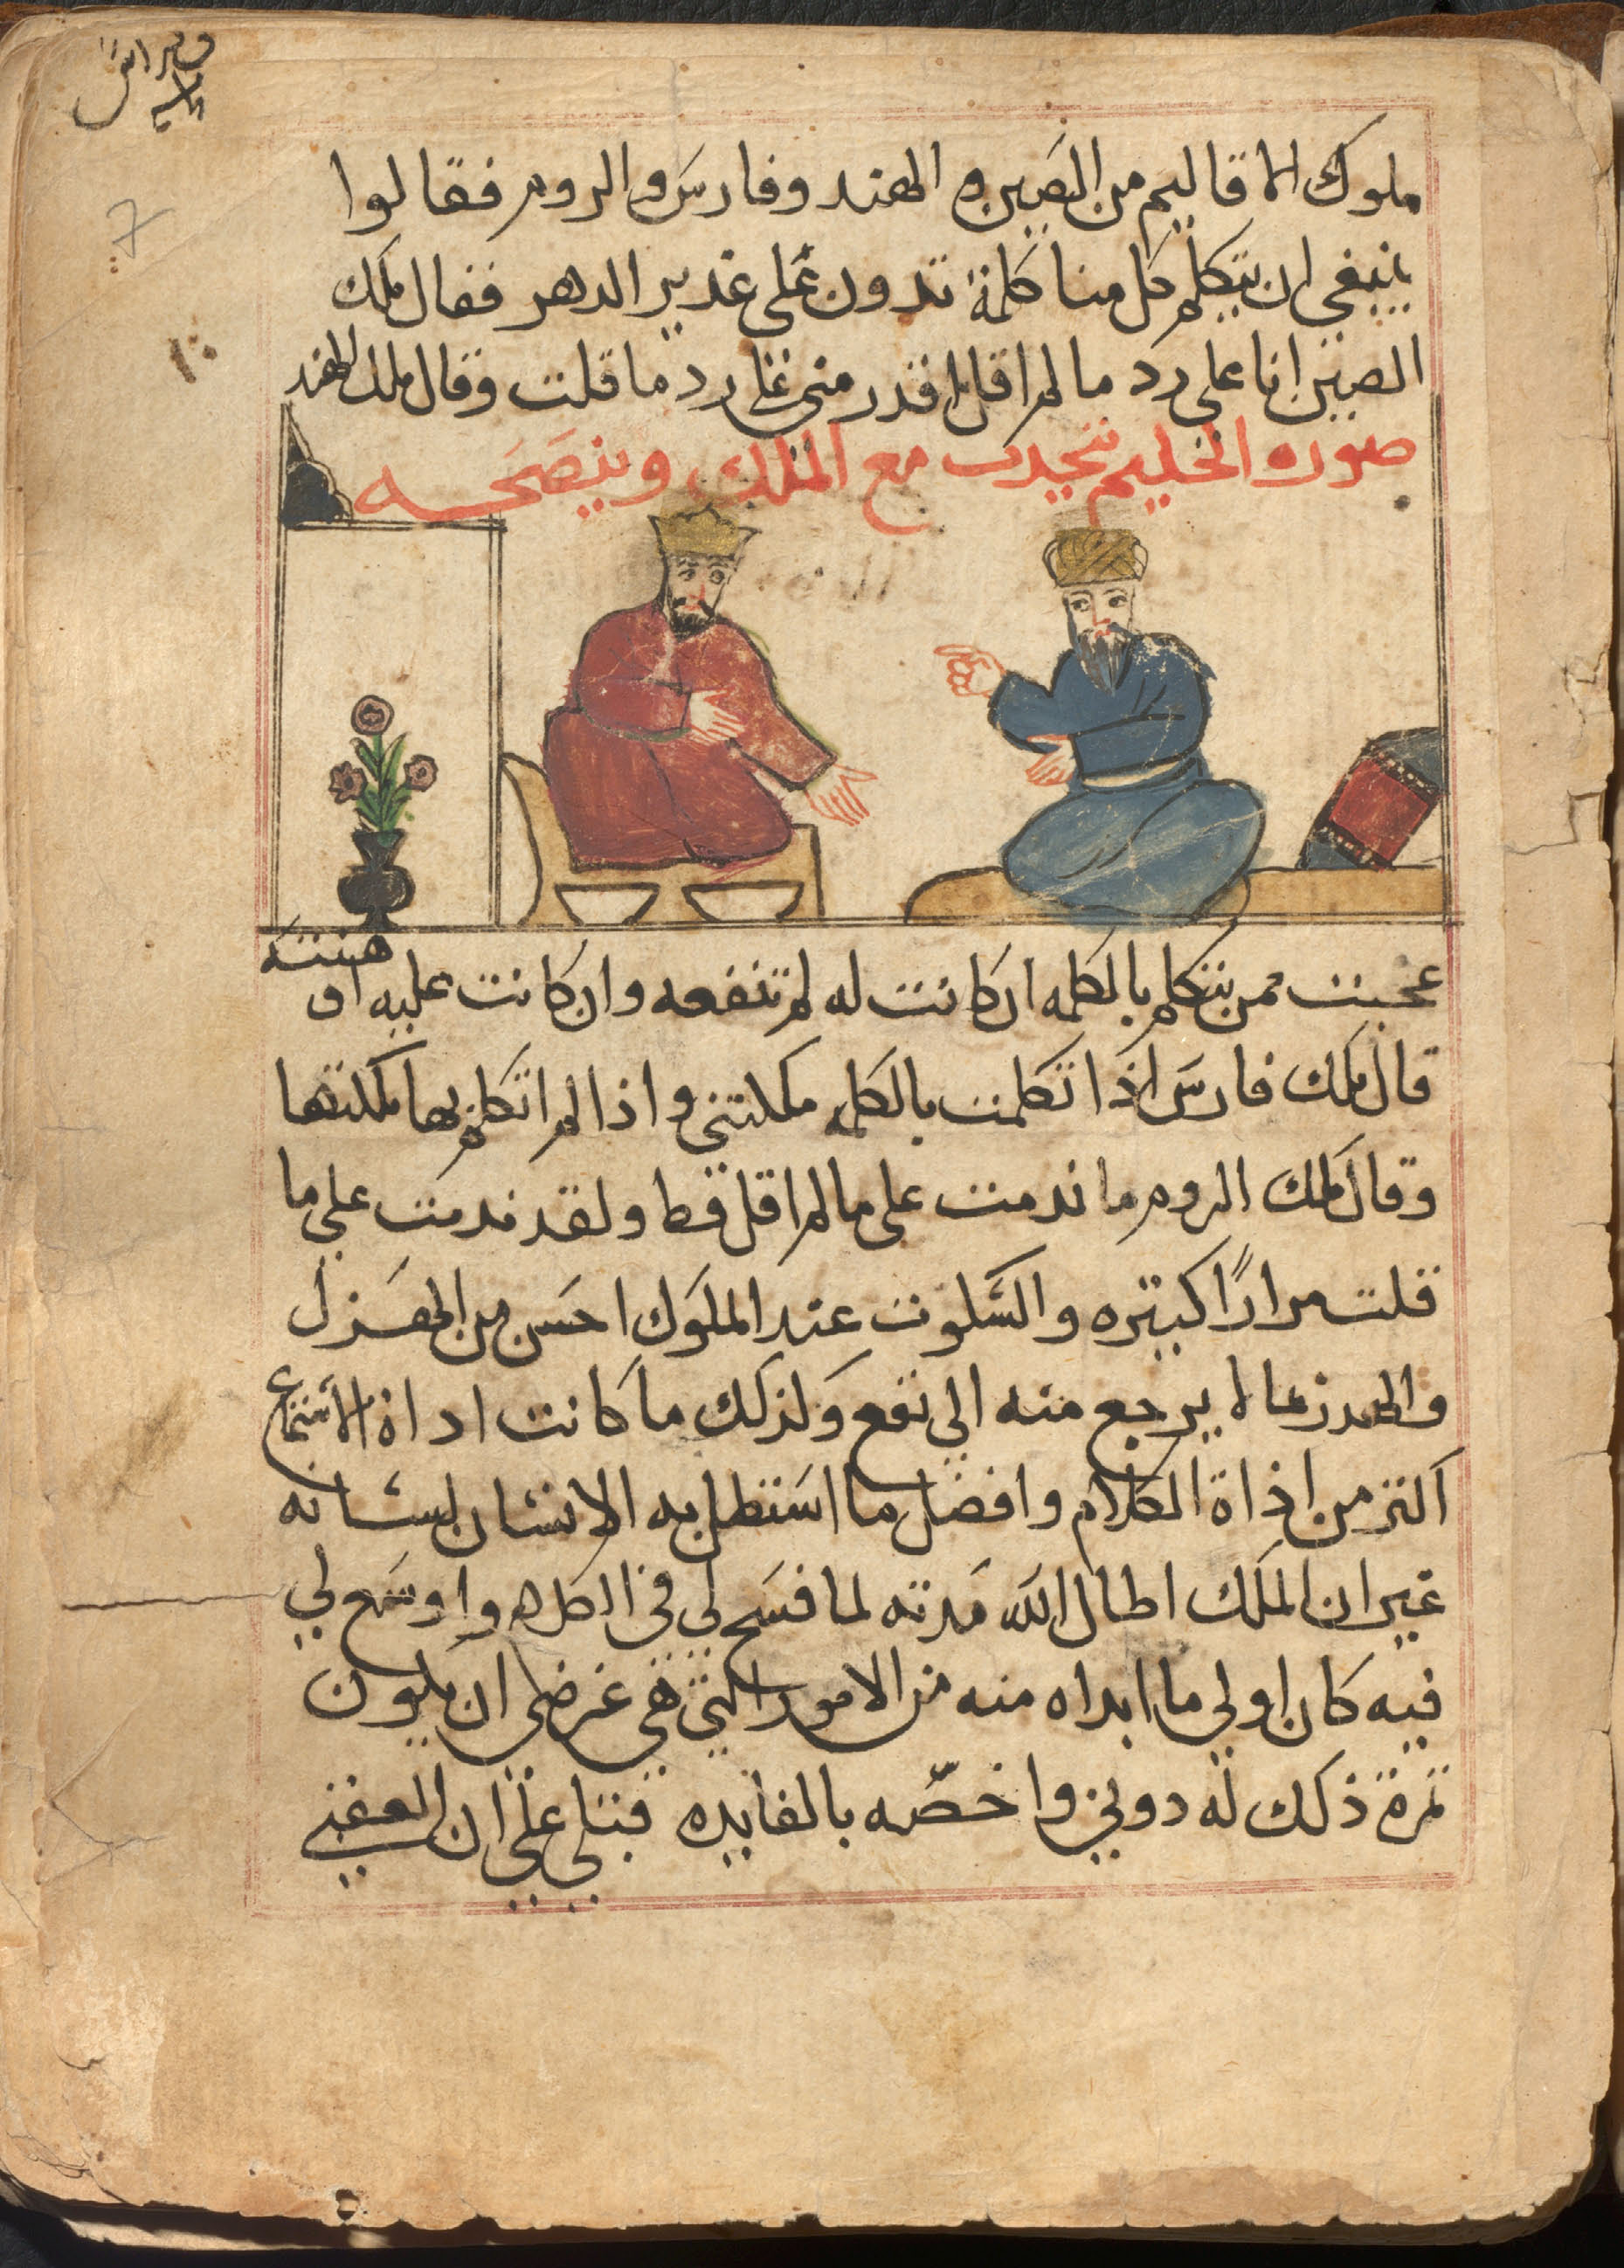 ملوك الاقاليم من الصين و الهند وفارس والروم فقالوا
ينبغي ان يتكلم كل منا كلمة تدون على غدير الدهر فقال ملك
الصين انا على رد ما لم اقل اقدر مني على رد ما قلت وقال ملك الهند
صوره الحكيم يتحدث مع الملك وينصحه
عجبت ممن يتكلم بالكلمه ان كانت له لم تنفعه وان كانت عليه او
قال ملك فارس اذا تكلمت بالكلمه ملكتني واذا لم اتكلم بها ملكتها
وقال ملك الروم ما ندمت على ما لم اقل قط ولقد ندمت على ما
قلت مرارًا كبتيره والسكوت عند الملوك احسن من الهزل
والهدر مما لا يرجع منه الى نفع وكذلك ما كانت اداة الاستماع
اكتر من اداة الكلام وافضل ما استظل به الانسان لسانه
غير ان الملك اطال الله مدته لما فسح لي في الكلام واوسع لي
فيه كان اولي ما ابداه منه من الامور التي هي غرضي ان يكون
ثمرة ذلك له دوني واخصّه بالفايده قبلي علي ان العقبي